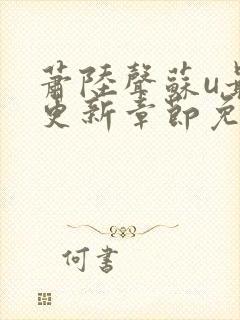 蕭陸聲蘇u
更新章節免
何書